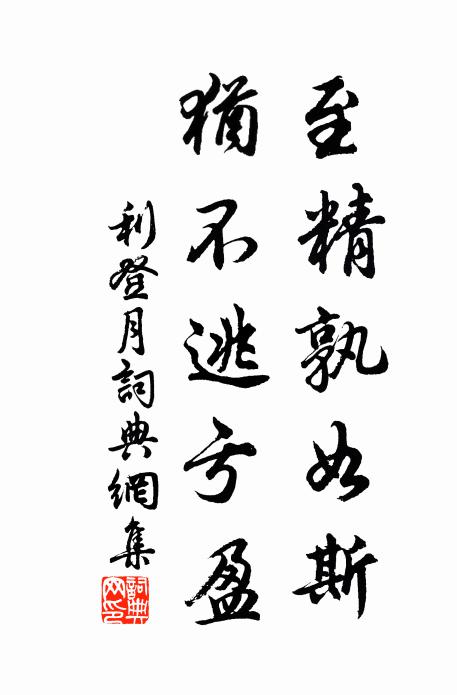 至精孰如斯
猶不逃亏盈
利登月詞典網集
詞典网印